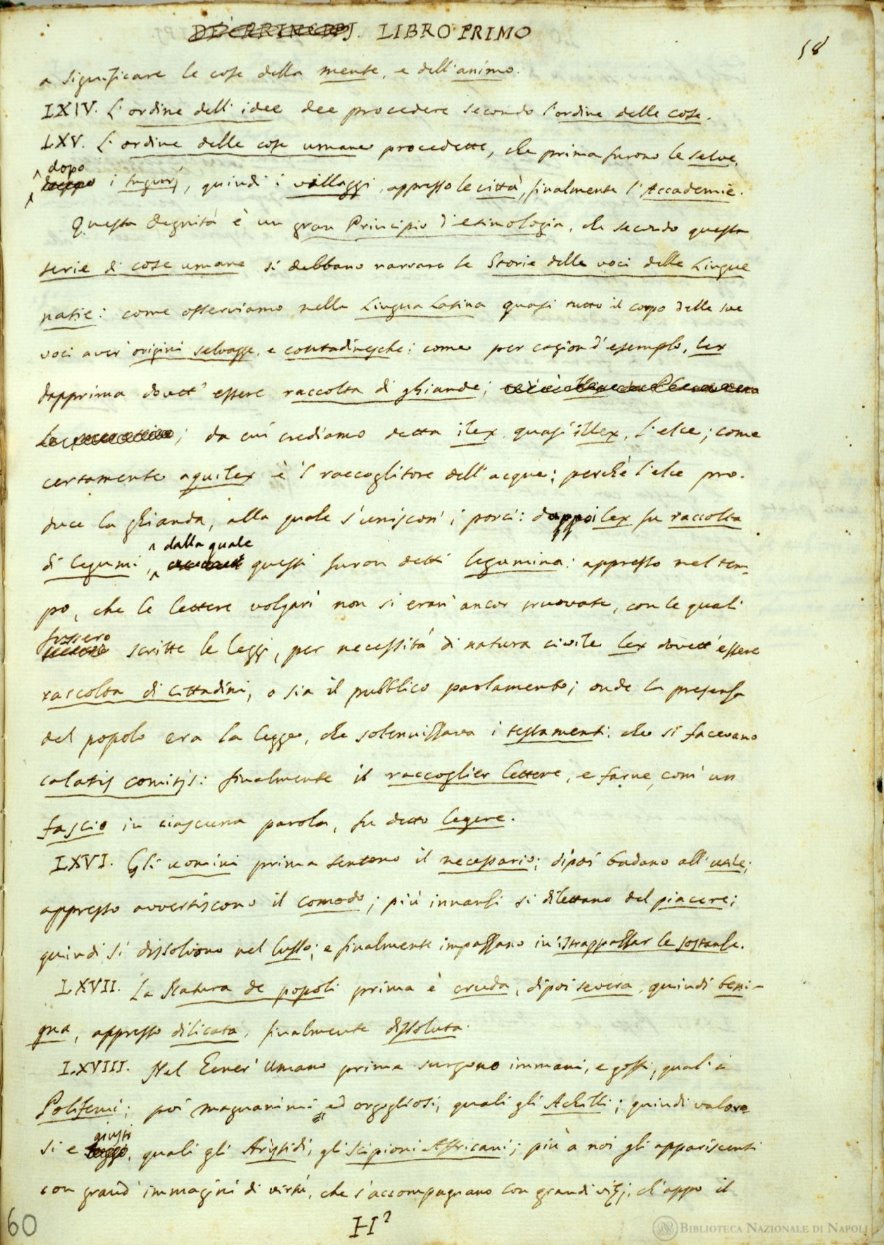 DE' PRINCIPJ. LIBRO PRIMO
58
a significare le cose della mente, e dell'animo.
LXIV. L'ordine dell'idee dee procedere secondo l'ordine delle cose.
LXV. L'ordine delle cose umane procedette, che prima furono le selve,
dopo
i tugurj, quindi i villaggi, appresso le città, finalmente l'Accademie.
Questa degnità è un gran Principio d'etimologia, che secondo questa
serie di cose umane si debbano narrare le Storie delle voci delle Lingue
natie: come osserviamo nella Lingua Latina quasi tutto il corpo delle sue
voci aver' origini selvagge, e contadinesche: come per cagion d'esemplo, lex
dapprima dovett' essere raccolta di ghiande;
; da cui crediamo detta ilex quasi illex, l'elce; come
certamente aquilex è 'l raccoglitore dell'acque; perchè l'elce pro-
duce la ghianda, alla quale s'uniscon' i porci: dappoi lex fu raccolta
dalla quale
di legumi, questi furon detti legumina: appresso nel tem-
po, che le lettere volgari non si eran' ancor truovate, con le quali
fussero
scritte le leggi, per necessità di natura civile lex dovett' essere
raccolta di Cittadini, o sia il pubblico parlamento; onde la presenza
del popolo era la legge, che solennizzava i testamenti, che si facevano
calatis comitijs: finalmente il raccoglier lettere, e farne com' un
fascio in ciascuna parola, fu detto legere.
LXVI. Gli uomini prima sentono il necessario; dipoi badano all'utile;
appresso avvertiscono il comodo; più innanzi si dilettano del piacere;
quindi si dissolvono nel lusso; e finalmente impazzano in istrappazzar le sostanze.
LXVII. La Natura de' popoli prima è cruda, dipoi severa, quindi beni-
gna, appresso dilicata, finalmente dissoluta.
LXVIII. Nel Gener' Umano prima surgono immani, e goffi, quali i
Polifemi; poi magnanimi ed orgogliosi, quali gli Achilli; quindi valoro-
giusti
si e , quali gli Aristidi, gli Scipioni Affricani; più a noi gli appariscenti
con grand' immagini di virtù, che s'accompagnano con grandi vizj, ch'appo il
60
H²
BIBLIOTECA NAZIONALE DI NAPOLI